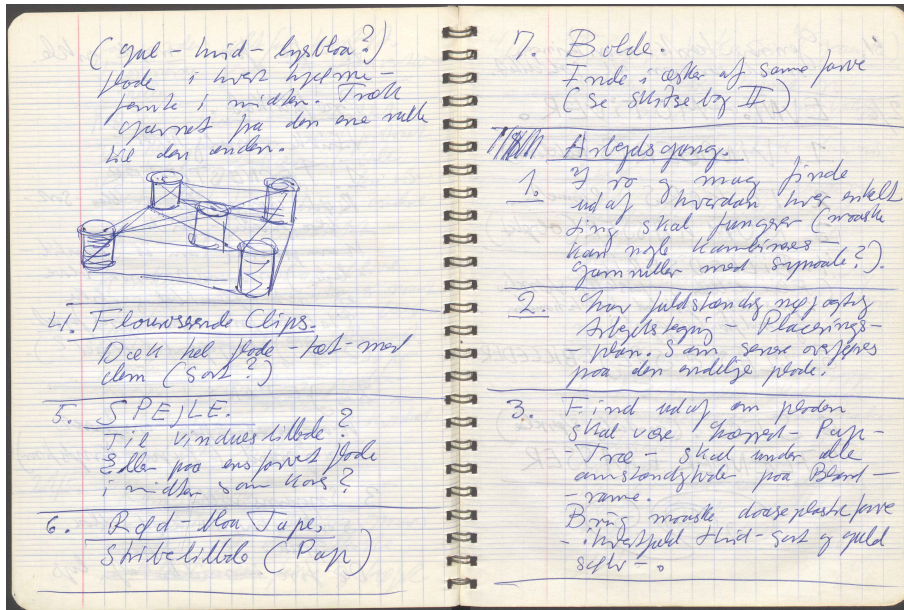 (gul - hvid - lysblaa?)
Plode i hvert hjørne -
femte i midten. Træk
garnet fra den ene rulle
til den anden.
4. Flouriserende Clips.
Dæk hel plode - tæt - med
dem (Sort?)
5. SPEJLE.
Til vinduesbillede?
Eller paa ensfarvet plode
i midten som Kors?
6. Rød - blaa Tape.
Stribebillede (Pap)
7. Bolde.
Inde i æsker af samme farve
(se skitsebog II)
Arbejdsgang.
1. I ro og mag finde
ud af hvordan hver enkelt
ting skal fungere (maaske
kan nogle kombineres -
garnruller med synaale?).
2. Lav fuldstændig nøjagtig
Arbejdstegning - Placerings-
- plan. Som senere overføres
paa den endelige plode.
3. Find ud af om ploden
skal være Lærred - Pap -
- Træ - skal under alle
omstændigheder paa Blænd -
- ramme.
Brug maaske daaseplasticfarve
- ihvertfald Hvid - sort og guld
sølv - .